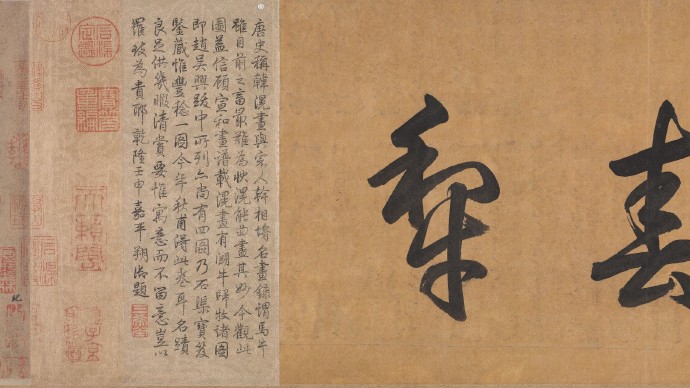 春犂
唐史稱韓滉畫與宗人幹相埒名畫錄謂馬牛
雖目前之畜最難為狀滉能曲盡其妙今觀此
圖益信顧宣和畫譜載滉畫有鬬牛歸牧諸圖
即趙吳興跋中所列亦尚有四圖乃石渠寶笈
鑒藏惟豐稔一圖今年秋甫得此卷耳名蹟
良足供幾暇清賞要惟寓意而不留意豈以
羅致為貴耶乾隆壬申嘉平朔御題